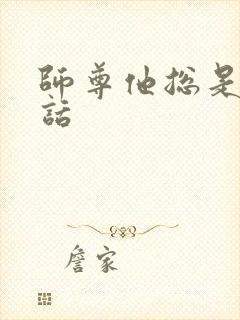 師尊他总是
話
詹家